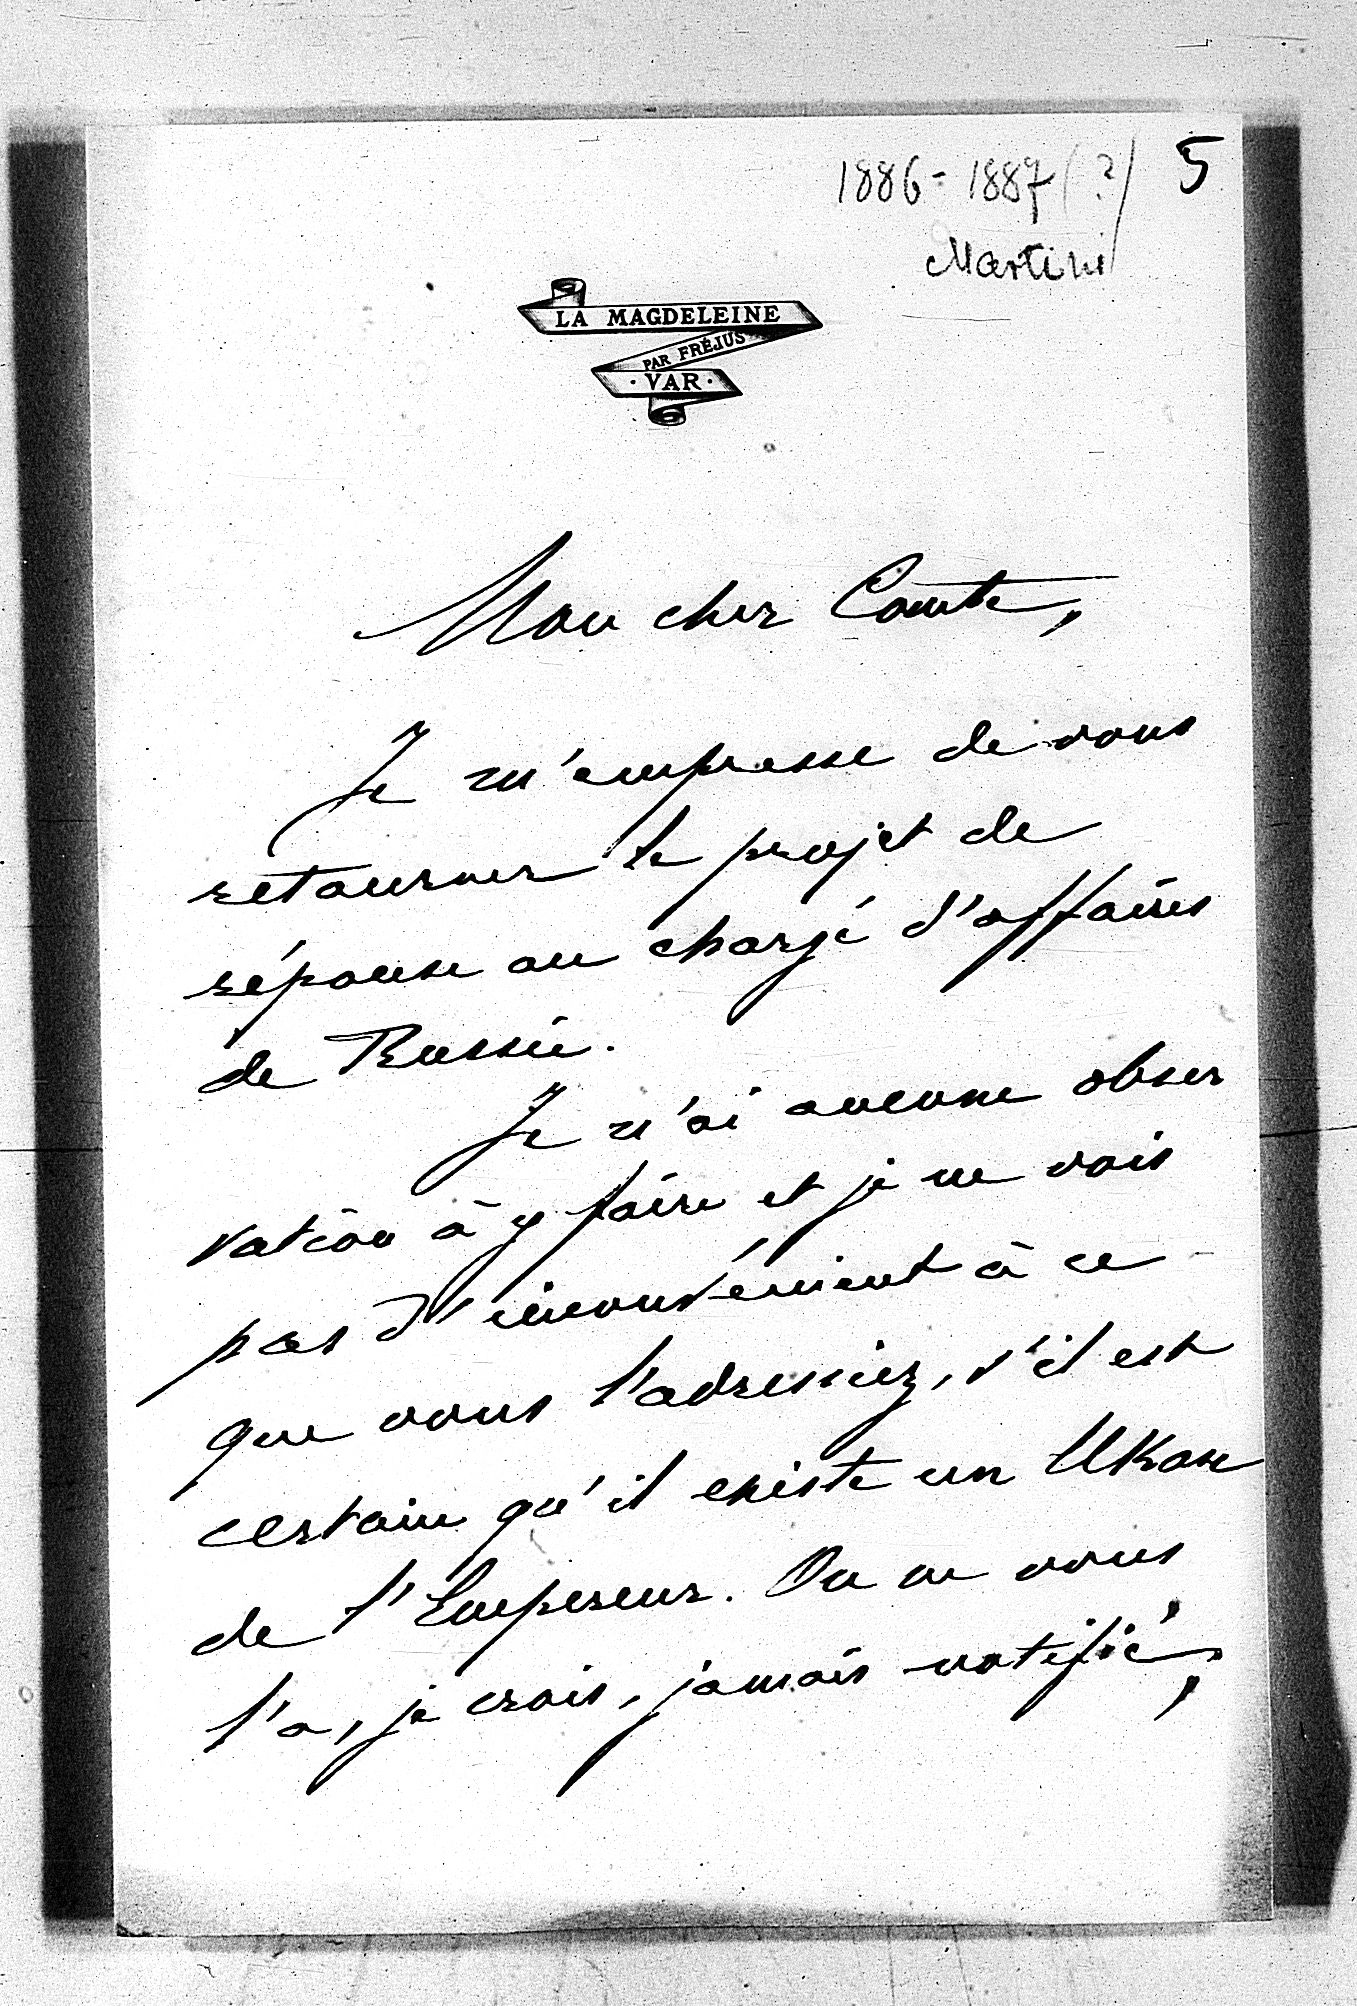 1886-1887 (?) 5
Martini
LA MAGDELEINE
PAR FRÉJUS
· VAR ·
Mon cher Comte,
Je m'empresse de vous
retourner le projet de
réponse au chargé d'affaires
de Russie.
Je n'ai aucune obser
vation à y faire et je ne vois
pas d'inconvénient à ce
que vous l'adressiez, s'il est
certain qu'il existe un Ukase
de l'Empereur. On ne vous
l'a, je crois, jamais notifié,